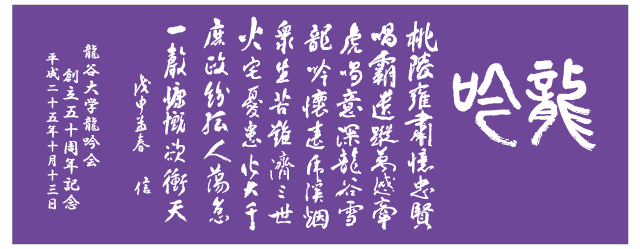 龍吟
桃陵雍肅憶忠賢
唱霸遺蹤萬感牽
虎嘯意深龍谷雪
龍吟懷遠虎溪烟
衆生苦難濟三世
火宅憂患化大千
庶政紛紜人蕩怠
一聲慷慨欲衝天
戊申孟春 信
龍谷大学龍吟会
創立五十周年記念
平成二十五年十月十三日